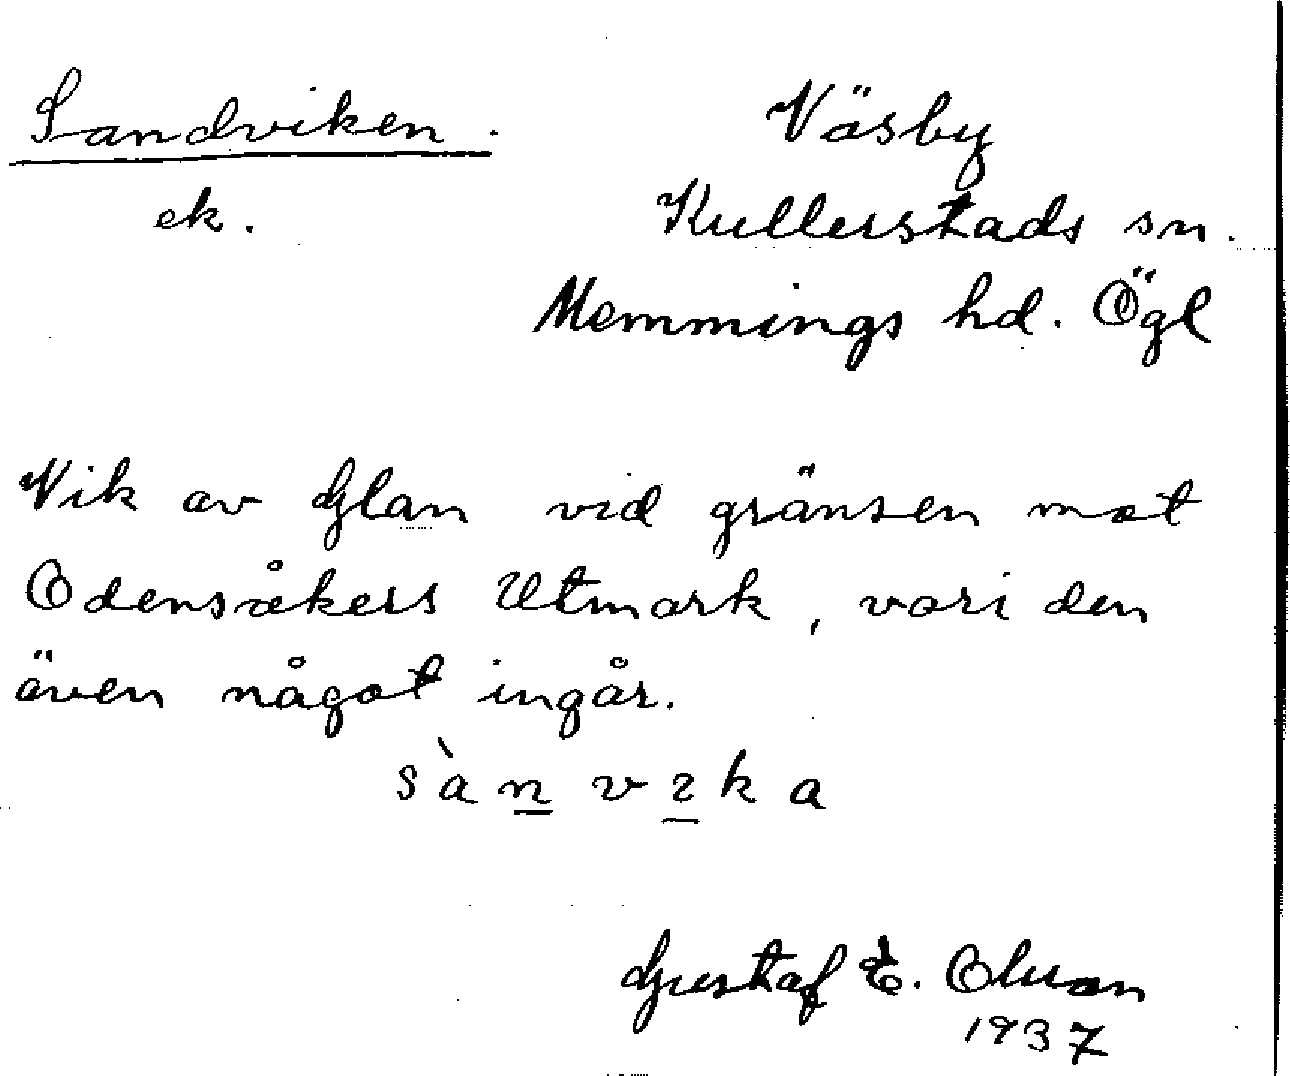 Sandviken.
ek.
Väsby
Kullerstads sn.
Memmings hd. Ögl
Vik av Glan vid gränsen mot
Odensåkers Utmark, vari den
även något ingår.
sànvıka
Gustaf E. Olsson
1937